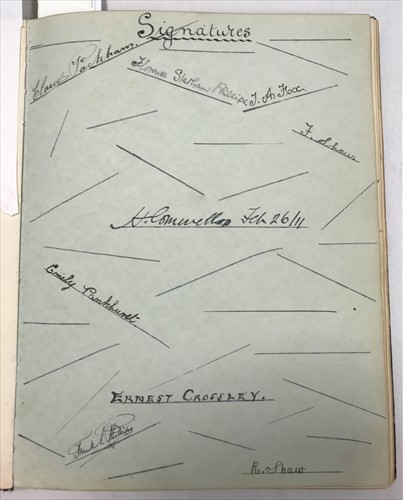 Signatures
Parkham.
Florence Statham Phillips
T. A. Fox
F. Shaw
Feb 26/11
Emily Pankhurst
ERNEST CROSSLEY.
Frank S. Phillips
R. Shaw